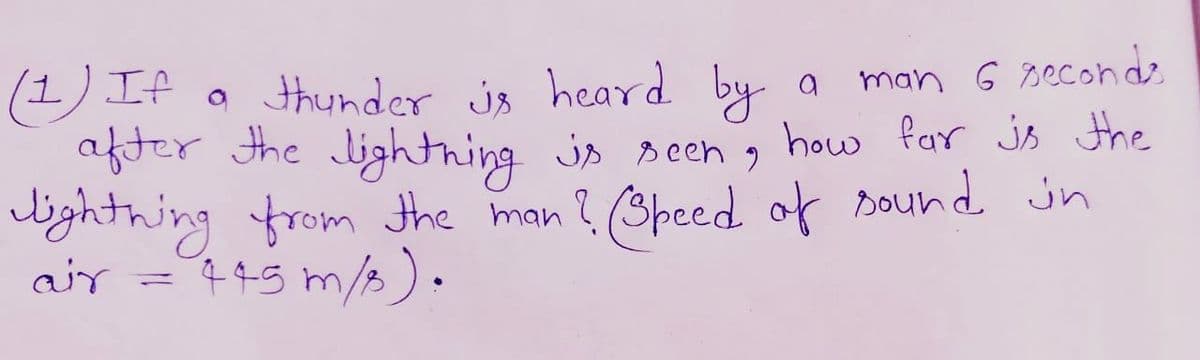 (1) If a thunder is heard by a man 6 seconds
after the lightning is seen, how far is the
lightning from the man? (Speed of sound in
air = 445 m/s).